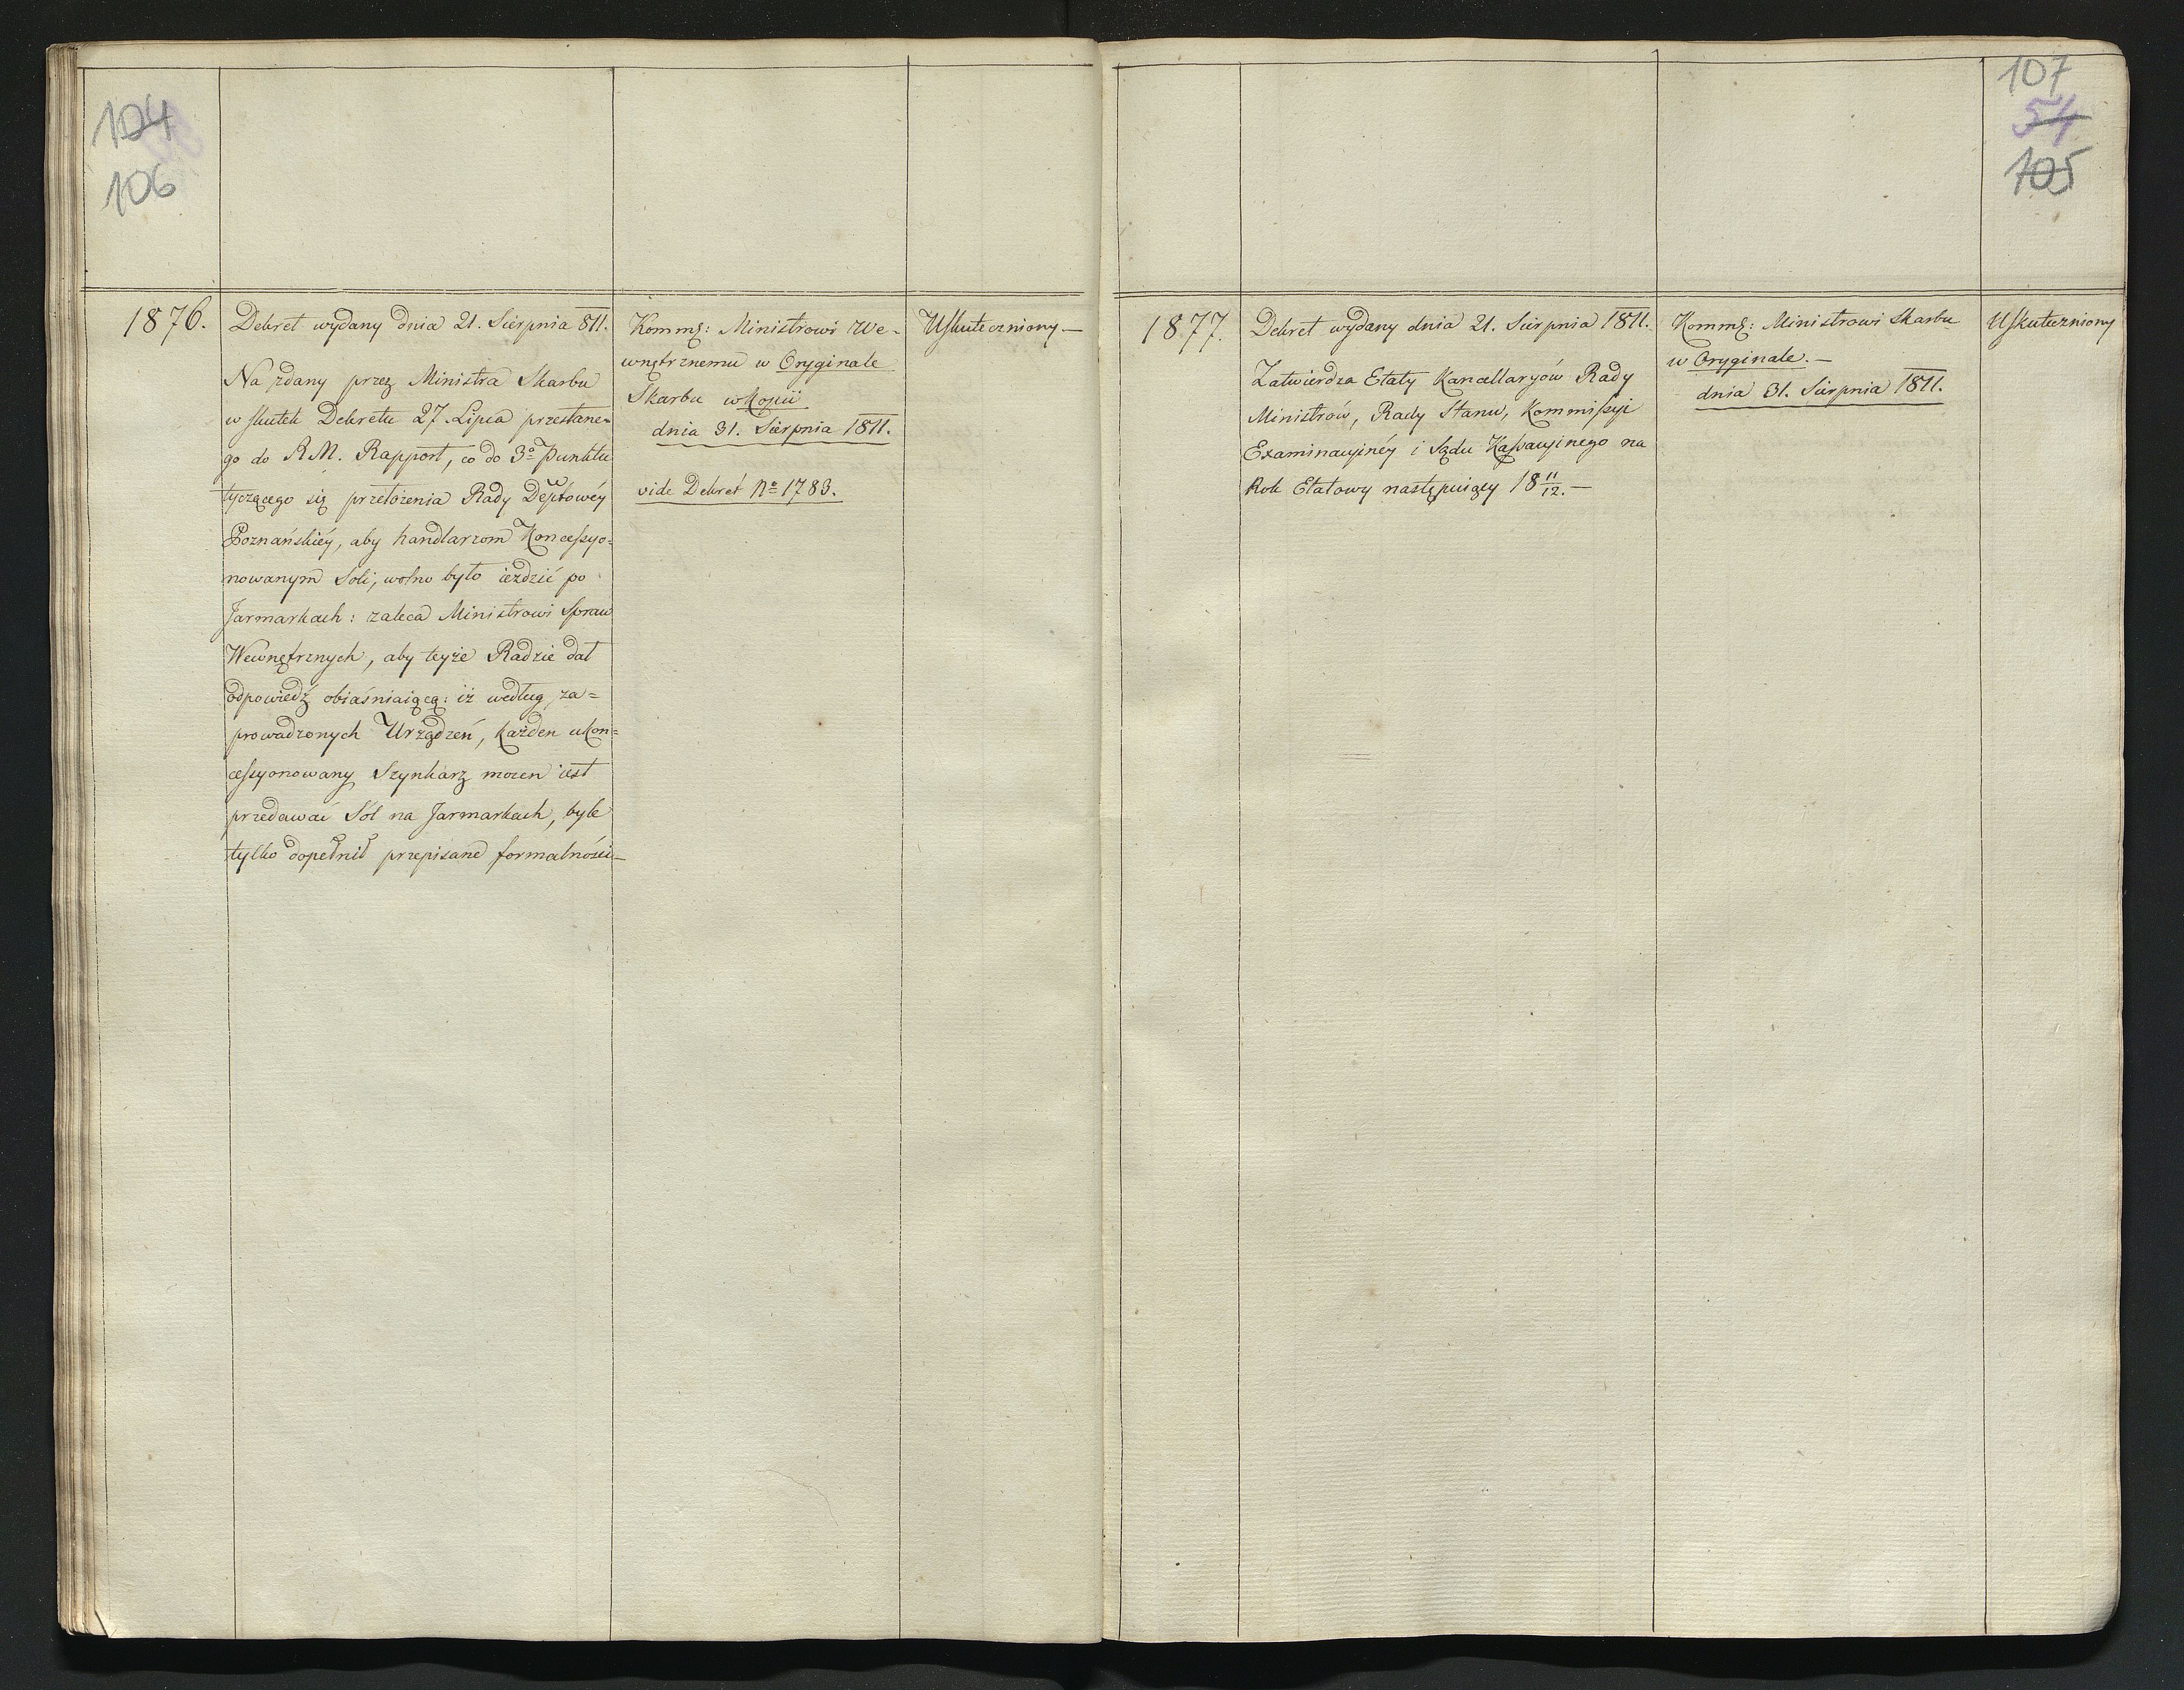 104
106
1876.
Dekret wydany dnia 21. Sierpnia 811.
Na zdany przez Ministra Skarbu
w skutek Dekretu 27. Lipca przesłane-
go do RM. Rapport, co do 3º Punktu
tyczącego się przełożenia Rady Deptowéy
Poznańskiéy, aby handlarzom Koncessyo-
nowanym Soli, wolno było ieździć po
Jarmarkach: zaleca Ministrowi Spraw
Wewnętrznych, aby teyże Radzie dał
odpowiedź obiaśniaiącą: iż według za-
prowadzonych Urządzeń, każden ukon-
cessyonowany Szynkarz mocen iest
przedawać Sól na Jarmarkach, byle
tylko dopełnił przepisane formalności—
Komms: Ministrowi We-
wnętrznemu w Oryginale
Skarbu w Kopii
dnia 31. Sierpnia 1811.
vide Dekret Nº 1783.
Uskuteczniony—
107
54
105
1877.
Dekret wydany dnia 21. Sierpnia 1811.
Zatwierdza Etaty Kancellaryów Rady
Ministrów, Rady Stanu, Kommissyi
Examinacyinéy i Sądu Kassacyinego na
Rok Etatowy następuiący 18 11/12.—
Komms: Ministrowi Skarbu
w Oryginale.—
dnia 31. Sierpnia 1811.
Uskuteczniony